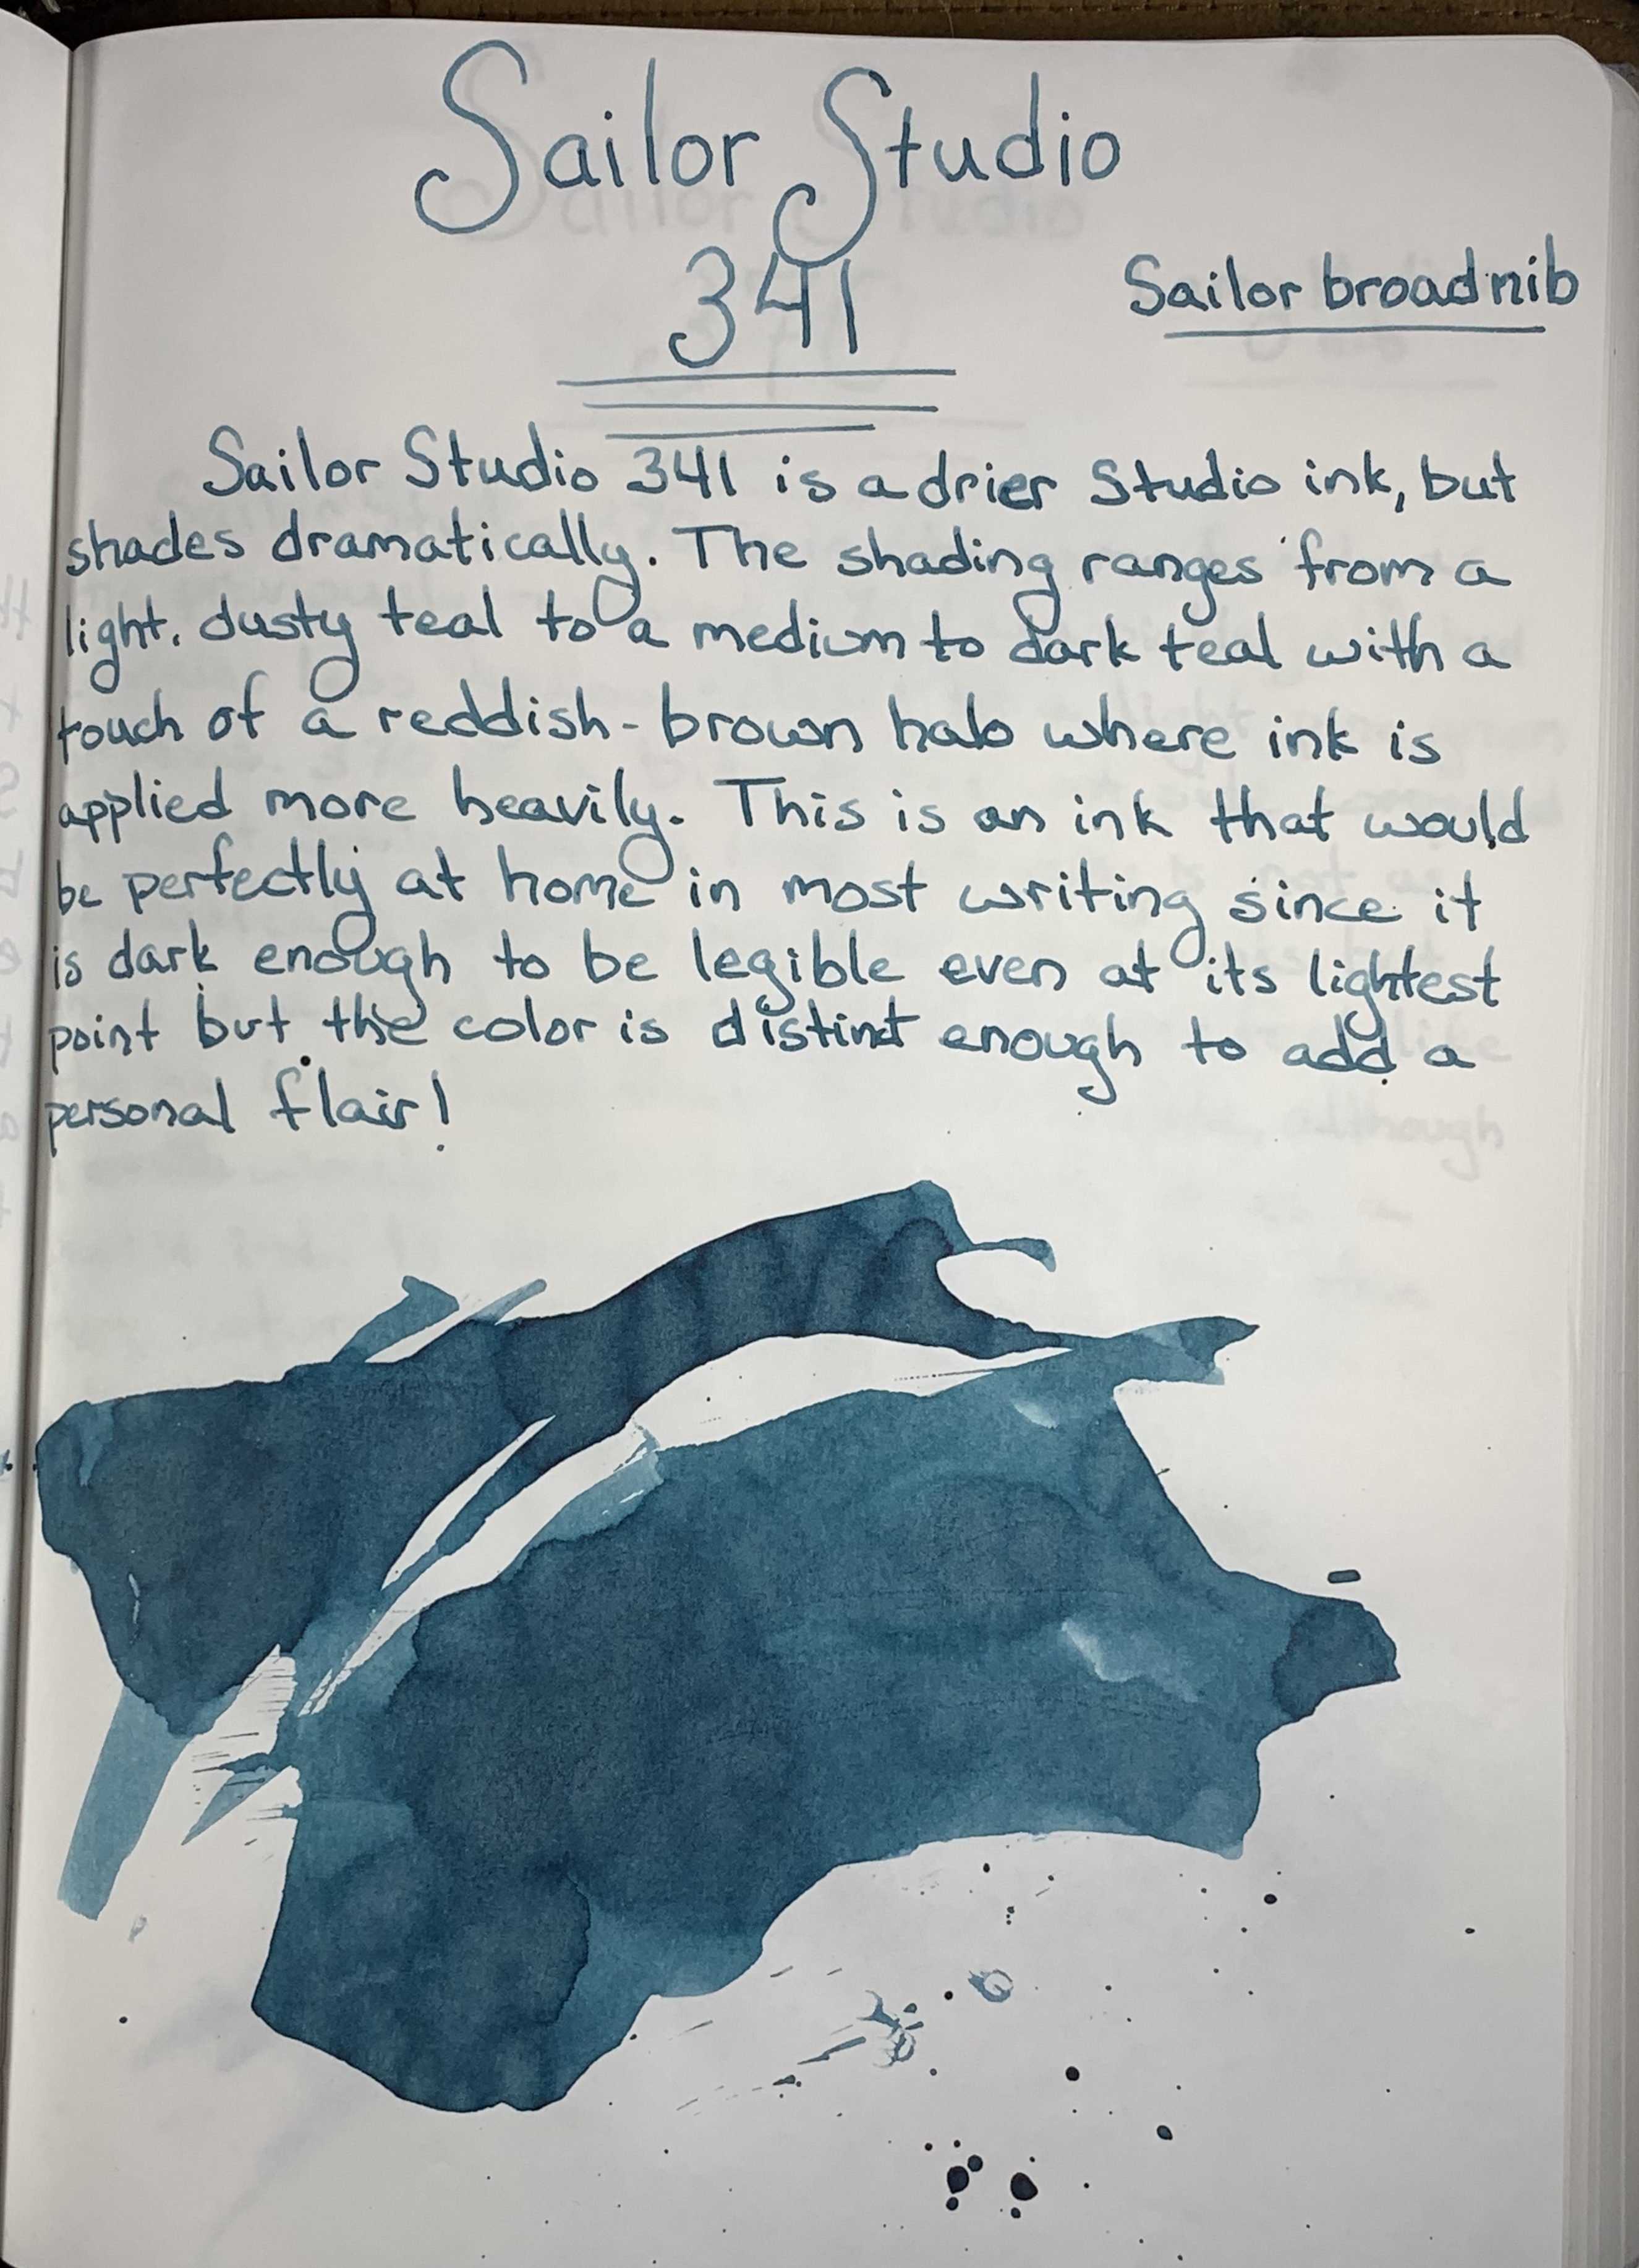 Sailor Studio
341
Sailor broad nib
Sailor Studio 341 is a drier Studio ink, but
shades dramatically. The shading ranges from a
light, dusty teal to a medium to dark teal with a
touch of a reddish-brown halo where ink is
applied more heavily. This is an ink that would
be perfectly at home in most writing since it
is dark enough to be legible even at its lightest
point but the color is distinct enough to add a
personal flair!